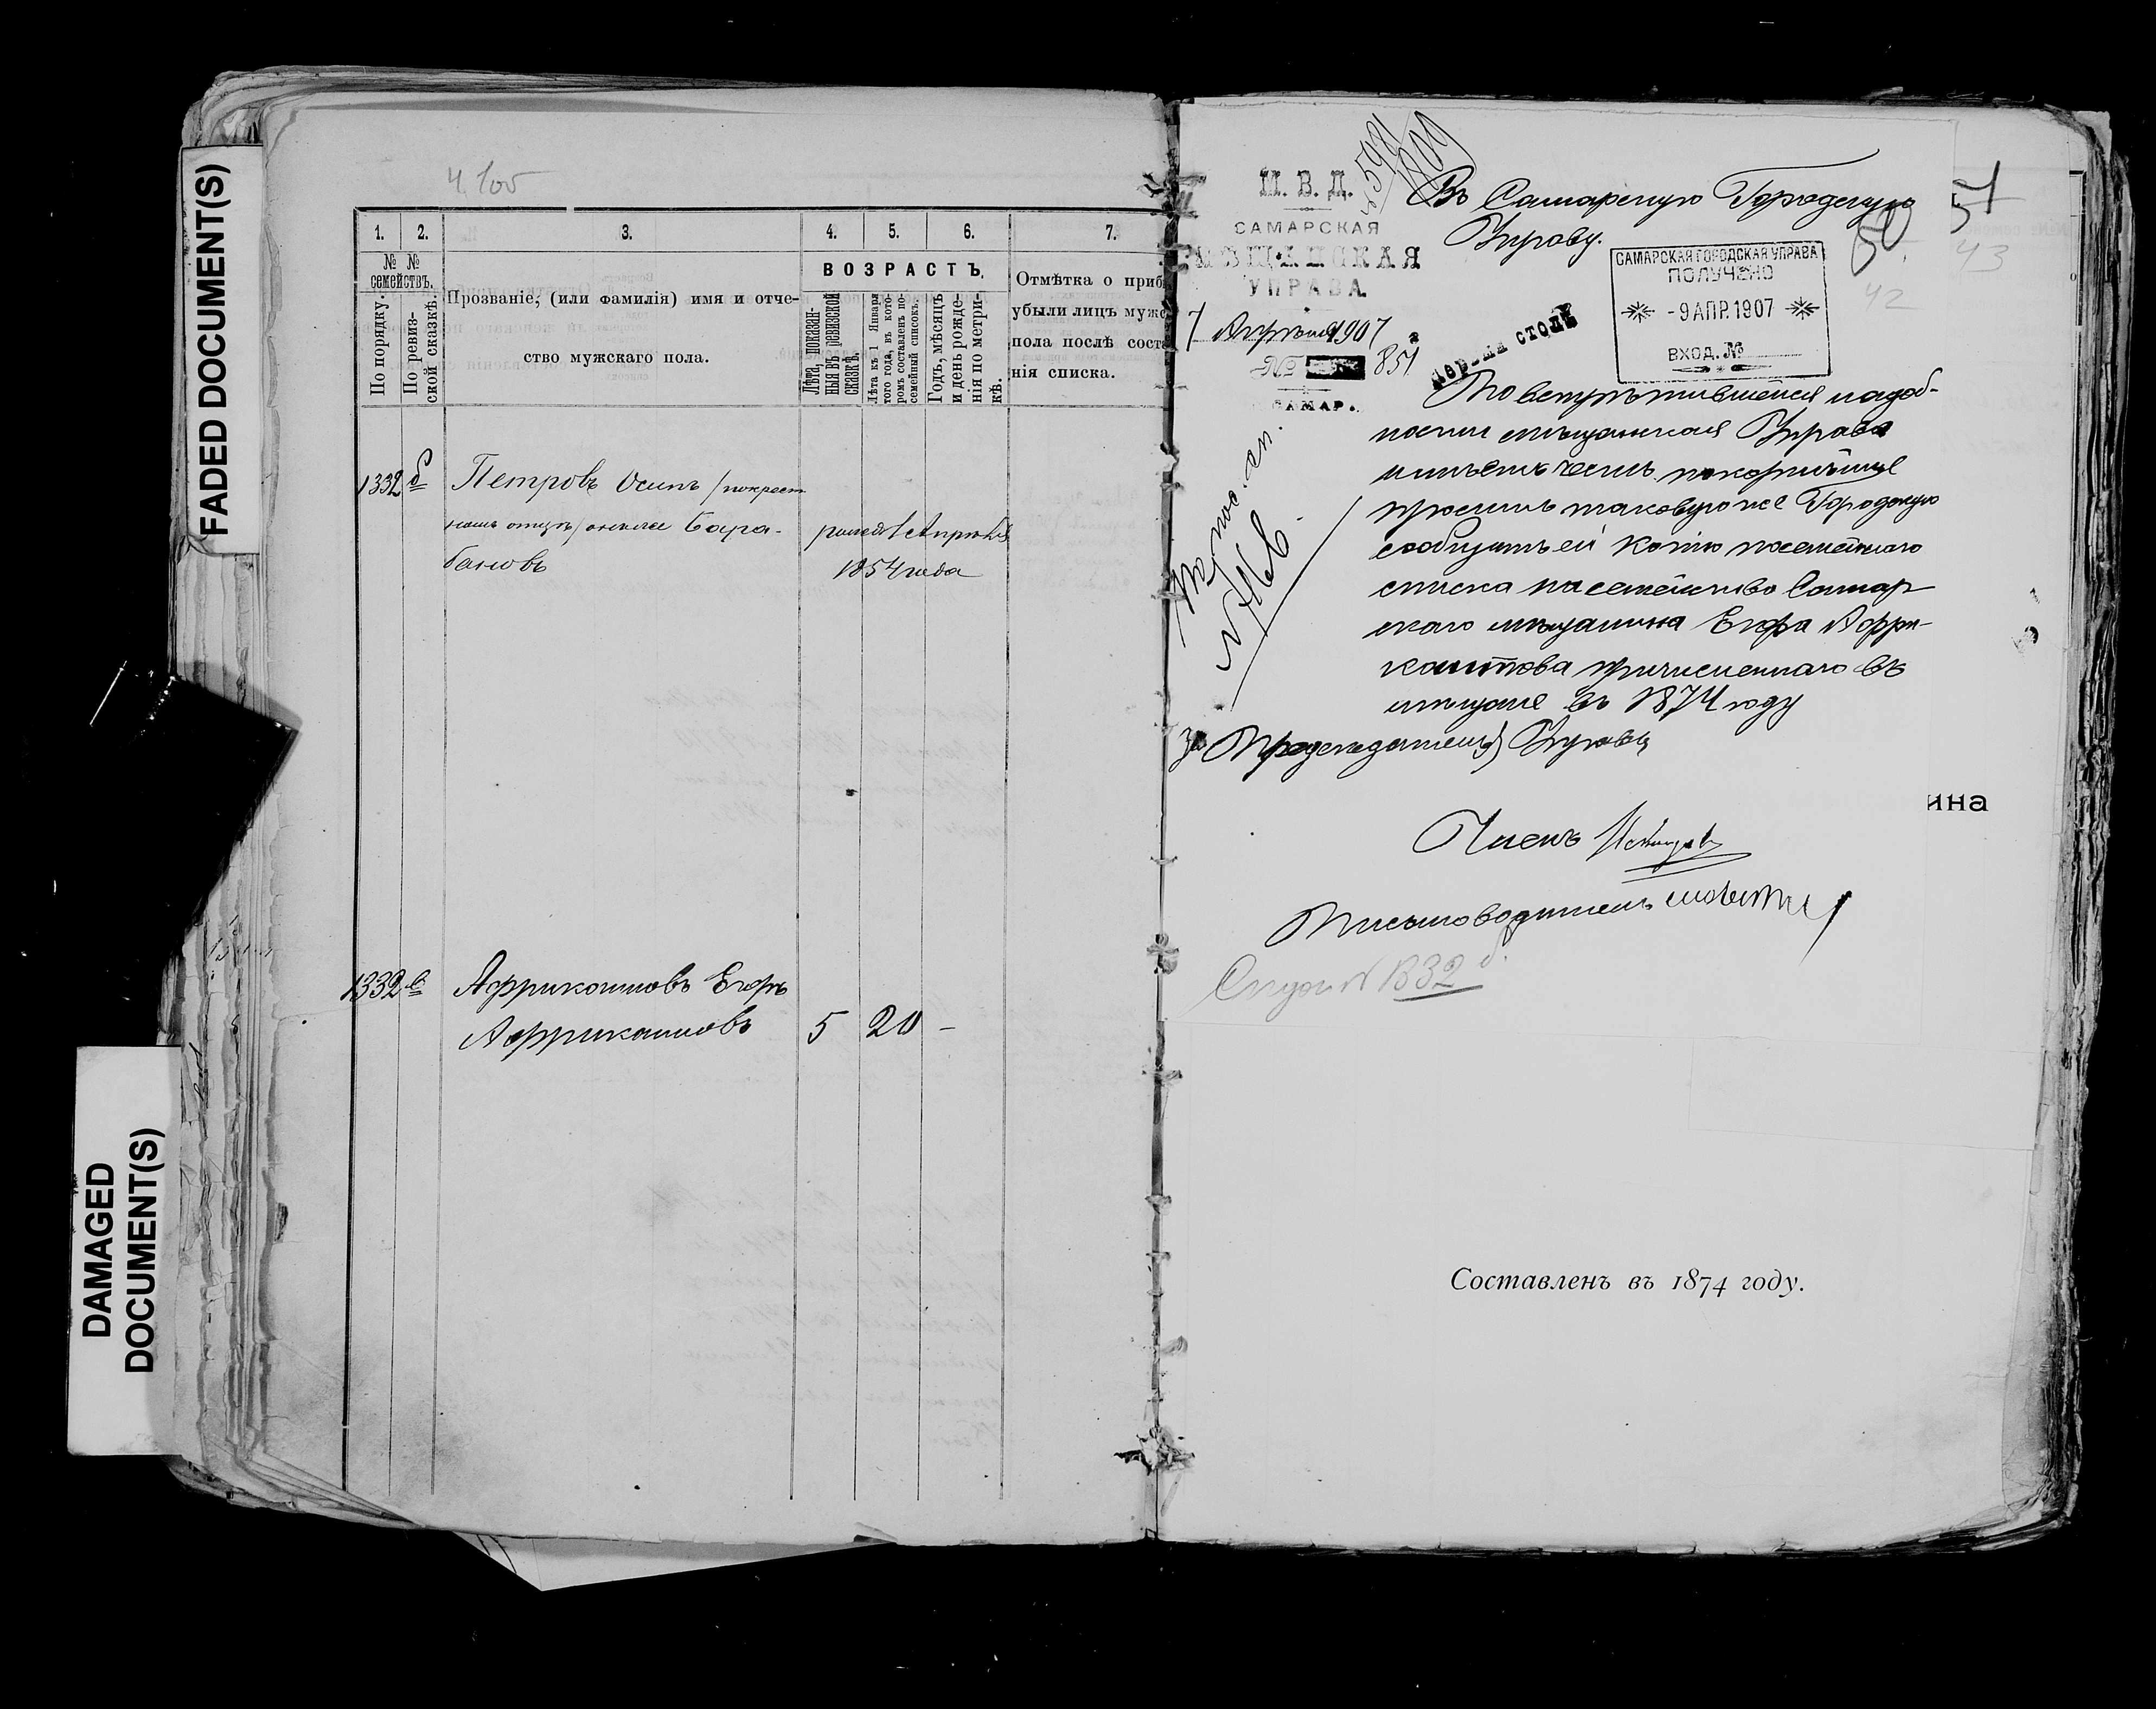 FADED DOCUMENT(S)
DAMAGED
DOCUMENT(S)
Ч. 105
1. 2. 3. 4. 5. 6. 7.
№ №
семействъ.
По порядку.
По ревиз-
ской сказкѣ.
Прозваніе, (или фамилія) имя и отче-
ство мужскаго пола.
ВОЗРАСТЪ.
Лѣта, показан-
ныя въ ревизской
сказкѣ.
Лѣта къ 1 Января
того года, въ кото-
ромъ составленъ по-
семейный списокъ.
Годъ, мѣсяцъ
и день рожде-
нія по метри-
кѣ.
Отмѣтка о приб
убыли лицъ мужс
пола послѣ соста
нія списка.
1332 б Петровъ Осипъ /покрест
номъ отцѣ/ онъ же Бара-
бановъ
родился 1 Апрѣля
1854 года
1332 в Аффрикантовъ Егоръ
Аффрикантовъ 5 20 -
М. В. Д.
САМАРСКАЯ
МѢЩАНСКАЯ
УПРАВА.
7 Апрѣля 1907
№ 851
САМАР.
Въ Самарскую Городскую
Управу.
САМАРСКАЯ ГОРОДСКАЯ УПРАВА
ПОЛУЧЕНО
- 9 АПР. 1907
ВХОД. №
51
50
43
42
По встрѣтившейся надоб-
ности мѣщанская Управа
имѣетъ честь покорнѣйше
просить таковую же Городскую
сообщить ей копію посемейнаго
списка на семейство Самар
скаго мѣщанина Егора Аффри-
кантова причисленнаго въ
мѣщане въ 1874 году
За Предсѣдателя Управы
Членъ
Письмоводитель
1332
ина
Составленъ въ 1874 году.